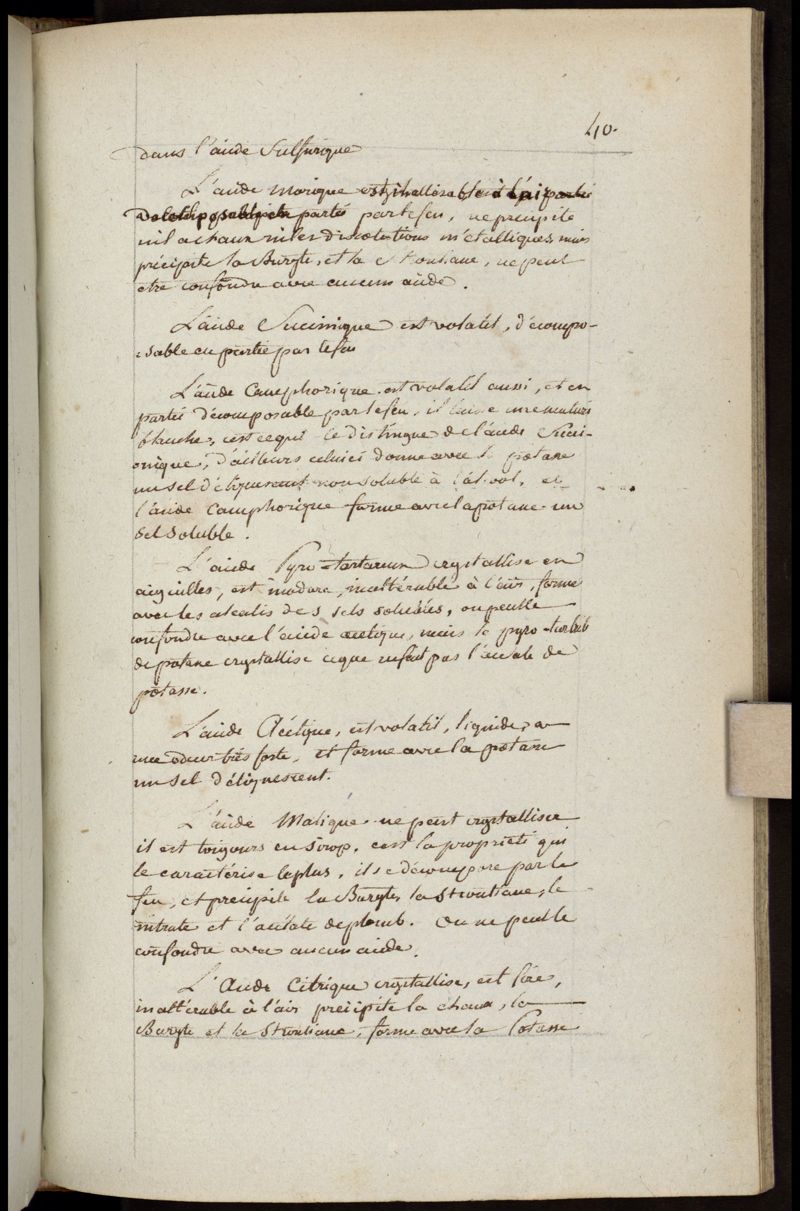 40.
dans l'acide Sulfurique
L'acide Morique est
partie par le feu, ne précipite
ni la chaux ni les dissolutions métalliques, mais
précipite la Baryte, et la Strontiane, ne peut
etre confondu avec aucun acide.
L'acide Succinique est volatil, décompo-
sable en partie par le feu
L'acide Camphorique est volatil aussi, et en
partie décomposable par le feu, il laisse une
blanche, c'est ce qui le distingue de l'acide Succi-
nique, d'ailleurs celui ci donne avec la potasse
un sel déliquescent non soluble à l'alcool, et
l'acide Camphorique forme avec la potasse un
sel soluble.
L'acide Pyro-tartareux crystallise en
aiguilles, est inodore, inaltérable à l'air, forme
avec les alcalis des sels solubles, on peut le
confondre avec l'acide acétique, mais le pyro-tartrite
de potasse crystallise ce que ne fait pas l'acétate de
potasse.
L'acide Acétique, est volatil, liquide, a
une odeur très forte, et forme avec la potasse
un sel déliquescent.
L'acide Malique ne peut crystalliser
il est toujours en sirop, c'est la propriété qui
le caractérise le plus, il se décompose par le
feu, et précipite la Baryte, la Strontiane, le
nitrate et l'acétate de plomb. On ne peut le
confondre avec aucun acide.
L'Acide Citrique crystallise, est fixe,
inaltérable à l'air précipite la chaux, la
Baryte et la Strontiane, forme avec la Potasse